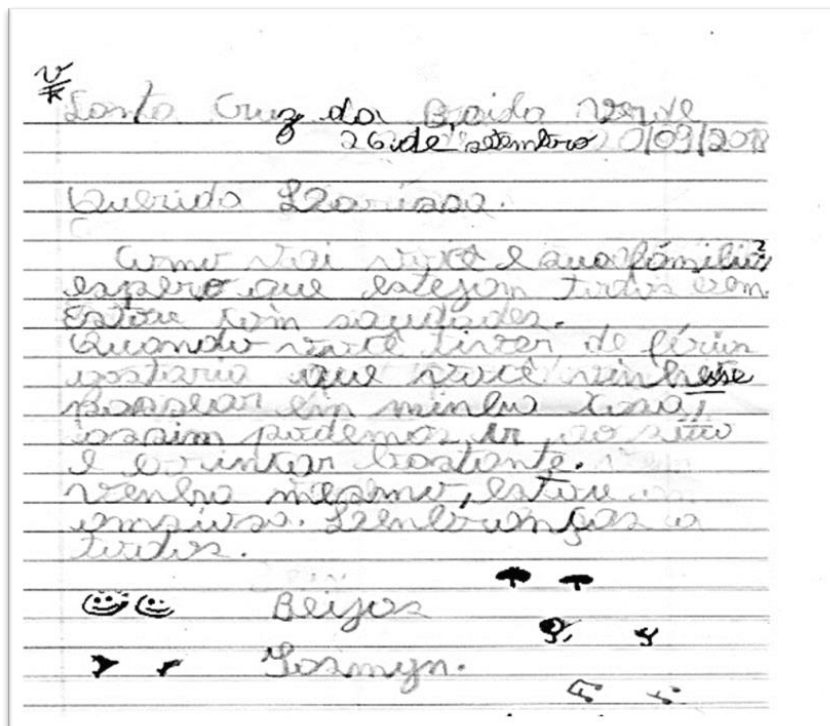 Santa Cruz da Baixa Verde
26 de setembro 0/09/2018
Querida Larissa.
Como vai você e sua família?
espero que estejam todos bem.
Estou com saudades.
Quando você tiver de férias
gostaria que você vinhesse
passear em minha casa,
assim podemos ir ao sítio
e brincar bastante.
venha mesmo, estou
ansiosa. Lembranças a
todos.
Beijos
Yasmyn.